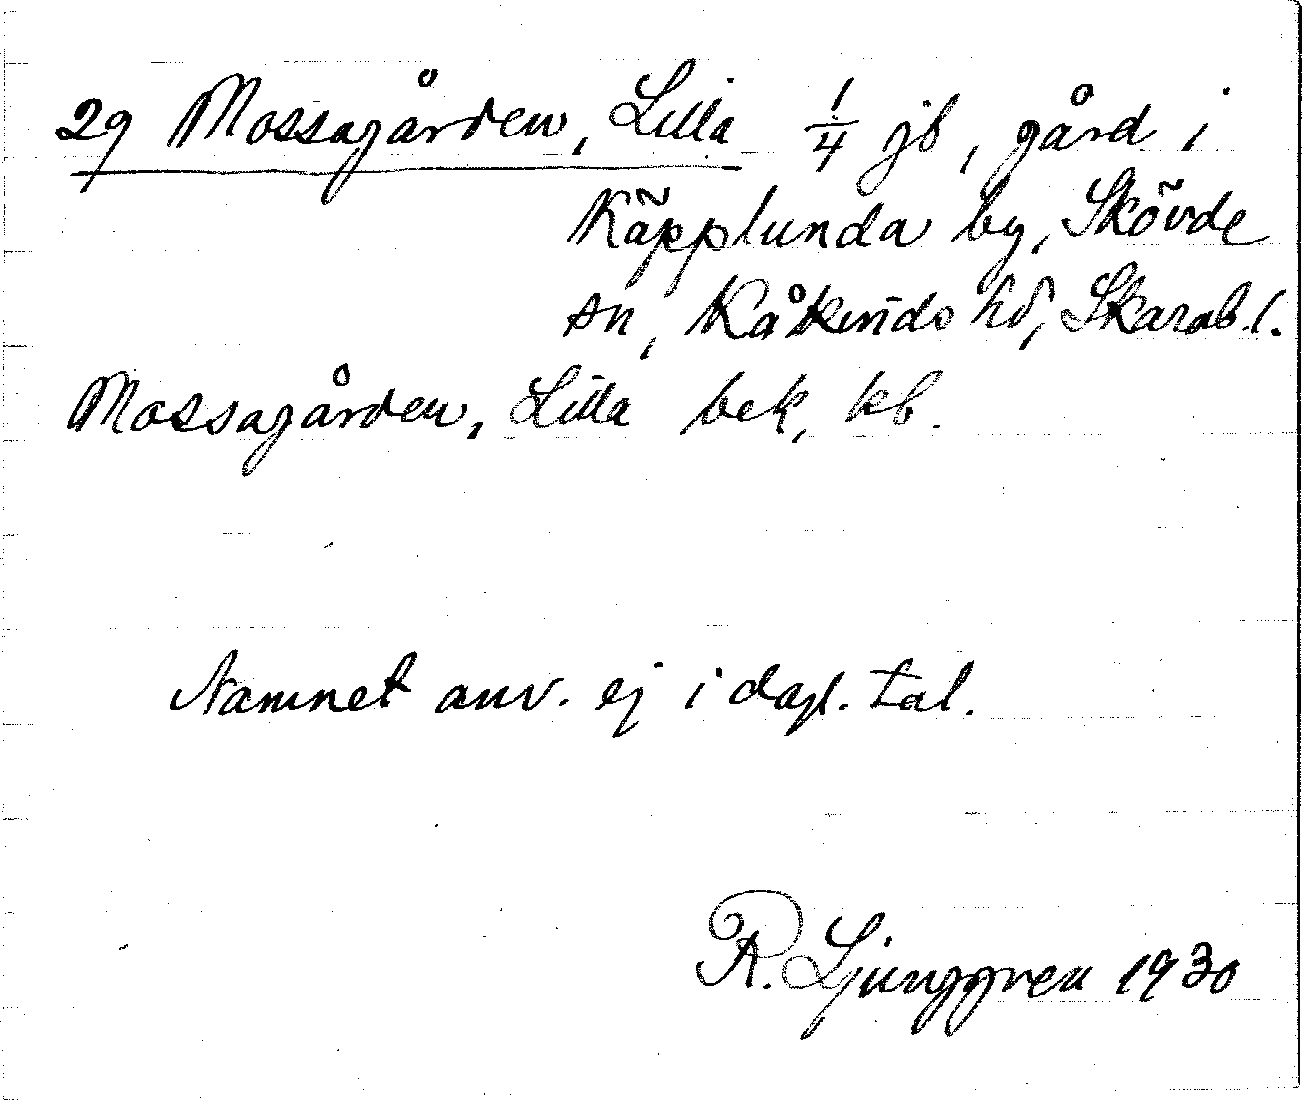 29 Mossagården, Lilla 1/4 jb, gård i
Käpplunda by, Skövde
sn, Kåkinds hd, Skarab. l.
Mossagården, Lilla bek, kb.
Namnet anv. ej i dagl. tal.
R. Ljunggren 1930